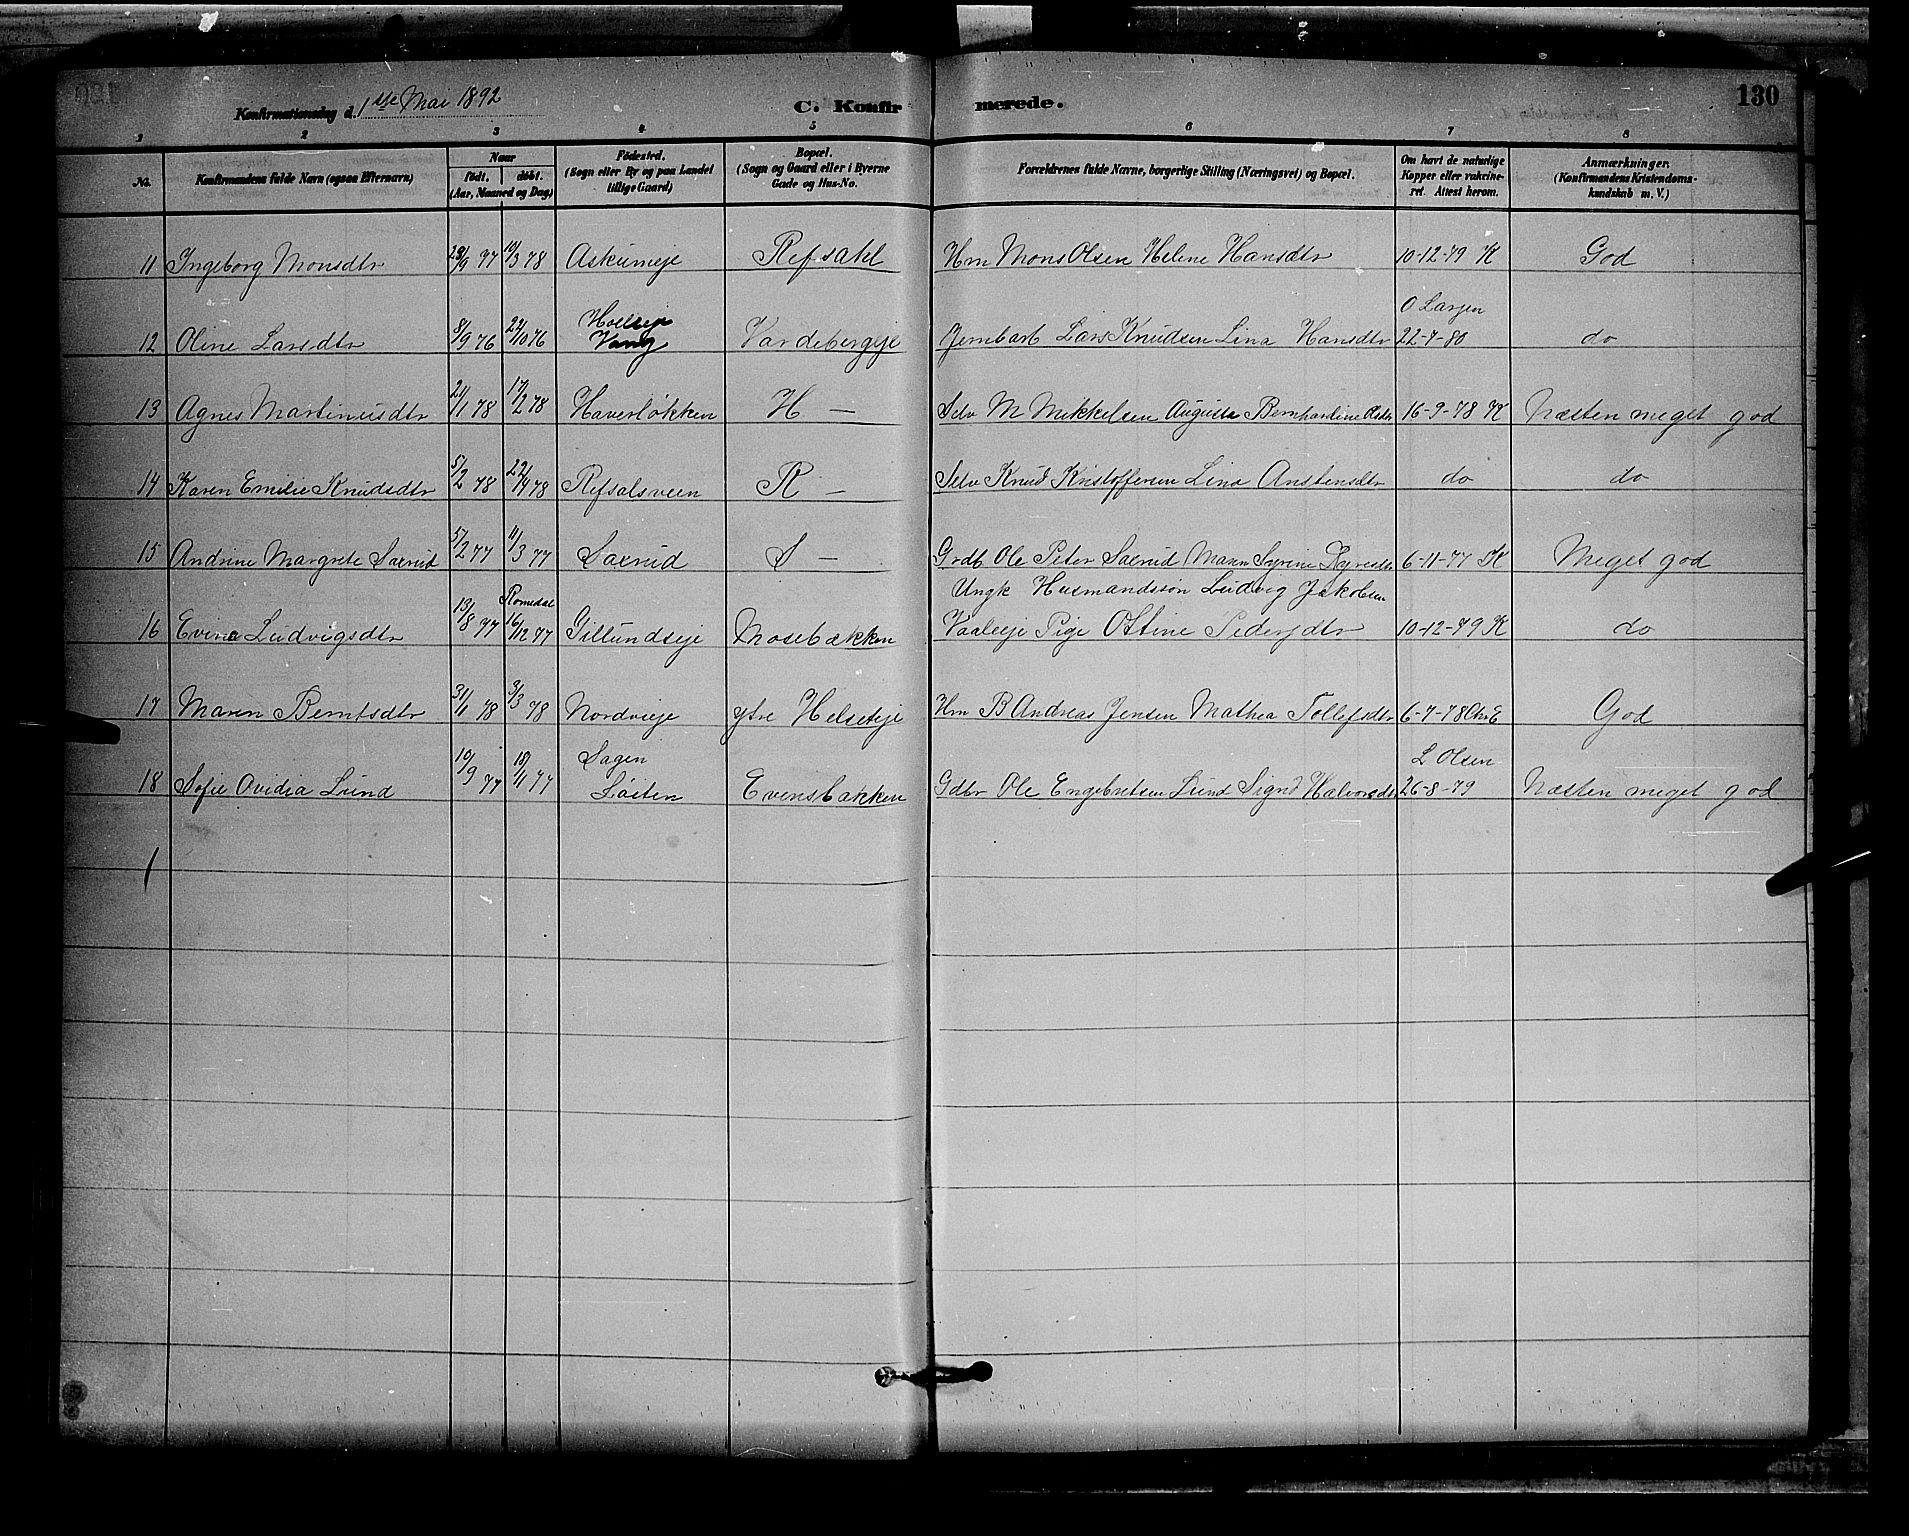 Konfirmationsdag d. 1ste Mai 1892 C. Konfirmerede. 130
1 2 3 4 5 6 7 8
No. Konfirmandens fulde Navn (ogsaa Efternavn) Naar født. døbt. (Aar, Maaned og Dag) Fødested. (Sogn eller By og paa Landet tillige Gaard) Bopæl. (Sogn og Gaard eller i Byerne Gade og Hus-No. Forældrenes fulde Navne, borgerlige Stilling (Næringsvei) og Bopæl. Om havt de naturlige Kopper eller vakcineret. Attest herom. Anmærkninger. (Konfirmandens Kristendomskundskab m. V.)
11 Ingeborg Monsdtr 28/9 77 19/3 78 Askumeje Refsahl Hm Mons Olsen Helene Hansdtr 10-12-79 K God
12 Oline Larsdtr 8/9 76 22/10 76 Vang Vardebergeje Jernbarb Lars Knudsen Lina Hansdtr O Larsen 22-7-80 do
13 Agnes Martinusdtr 21/1 78 17/2 78 Haverløkken H — Selv M Mikkelsen Augusta Bernhardine Olsdtr 16-9-78 K Næsten meget god
14 Karen Emilie Knudsdtr 5/2 78 22/4 78 Refsalsveen R — Selv Knud Kristoffersen Lina Anstensdtr do do
15 Andrine Margrete Saxrud 5/2 77 11/3 77 Saxrud S — Grdb Ole Peter Saxrud Maren Syrine 6-11-77 K Meget god
16 Evine Ludvigsdtr 13/8 77 Romedal 16/12 77 Gillundseje Mosebækken Ungk Husmandssøn Ludvig Jakobsen
Vaaleeje Pige Ottine Pedersdtr 10-12-79 K do
17 Maren Berntsdtr 31/1 78 3/3 78 Nordvieje ytre Helseteje Hm B Andreas Jensen Mathea Tollefsdtr 6-7-78 Chr E God
18 Sofie Ovidia Lund 19/9 77 18/11 77 Sagen Løiten Evensbakken Gdbr Ole Engebretsen Lund Signe Halvorsdtr L Olsen 26-8-79 Næsten meget god